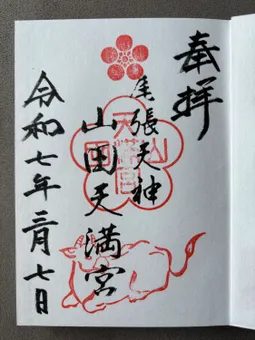 奉拝
尾張天神
山田天満宮
令和七年三月七日